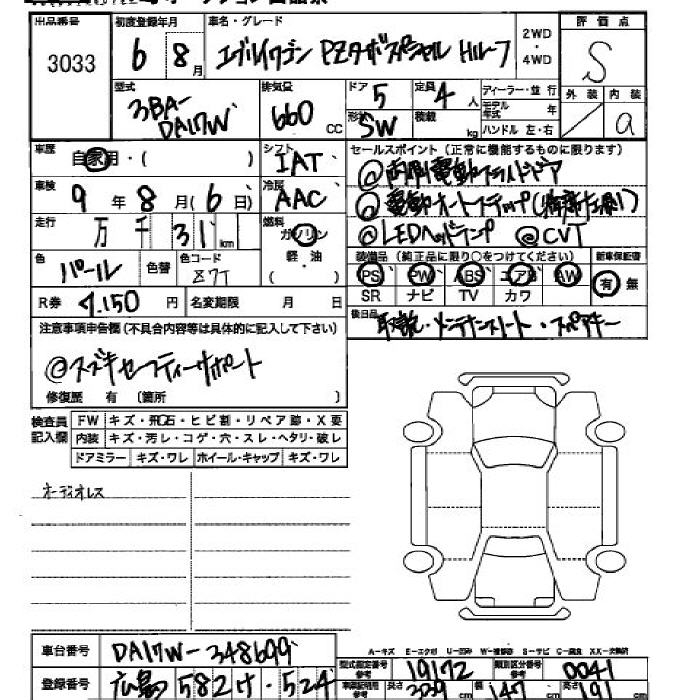 出品番号
3033
初度登録年月
6 8月
車名・グレード
エブリイワゴン PZターボスペシャル Hルーフ
2WD
・
4WD
評価点
S
型式
3BA-
DA17W
排気量
660 CC
ドア
5
定員
4人
形状
SW
積載
kg
ディーラー・並行
モデル
年式 年
ハンドル 左・右
外装
内装
a
車歴
自家用・( )
シフト
IAT
車検
9年8月(6日)
冷房
AAC
走行
万 千 31 km
燃料
ガソリン
軽・油
( )
色
パール
色替
色コード
Z7T
R券
9,150円
名変期限 月 日
セールスポイント (正常に機能するものに限ります)
◎両側電動スライドドア
◎電動オートステップ(助手席左側)
◎LEDヘッドランプ ◎CVT
装備品 (純正品に限り○をつけてください)
新車保証書
PS PW ABS エアB AW
有・無
SR ナビ TV カワ
後日品
取説・メンテナンスノート・スペアキー
注意事項申告欄 (不具合内容等は具体的に記入して下さい)
◎スズキセーフティーサポート
修復歴 有 (箇所 )
検査員
記入欄
FW キズ・飛石・ヒビ割・リペア跡・X要
内装 キズ・汚レ・コゲ・穴・スレ・ヘタリ・破レ
ドアミラー キズ・ワレ ホイール・キャップ キズ・ワレ
オーディオレス
A-キズ E-エクボ U-凹み W-補修跡 S-サビ C-腐食 XX-交換済
車台番号
DA17W-348699
型式指定番号
参考
19172
類別区分番号
参考
0041
登録番号
広島582け・524
車庫証明用
参考
長さ
339 cm
幅
147 cm
高さ
191 cm